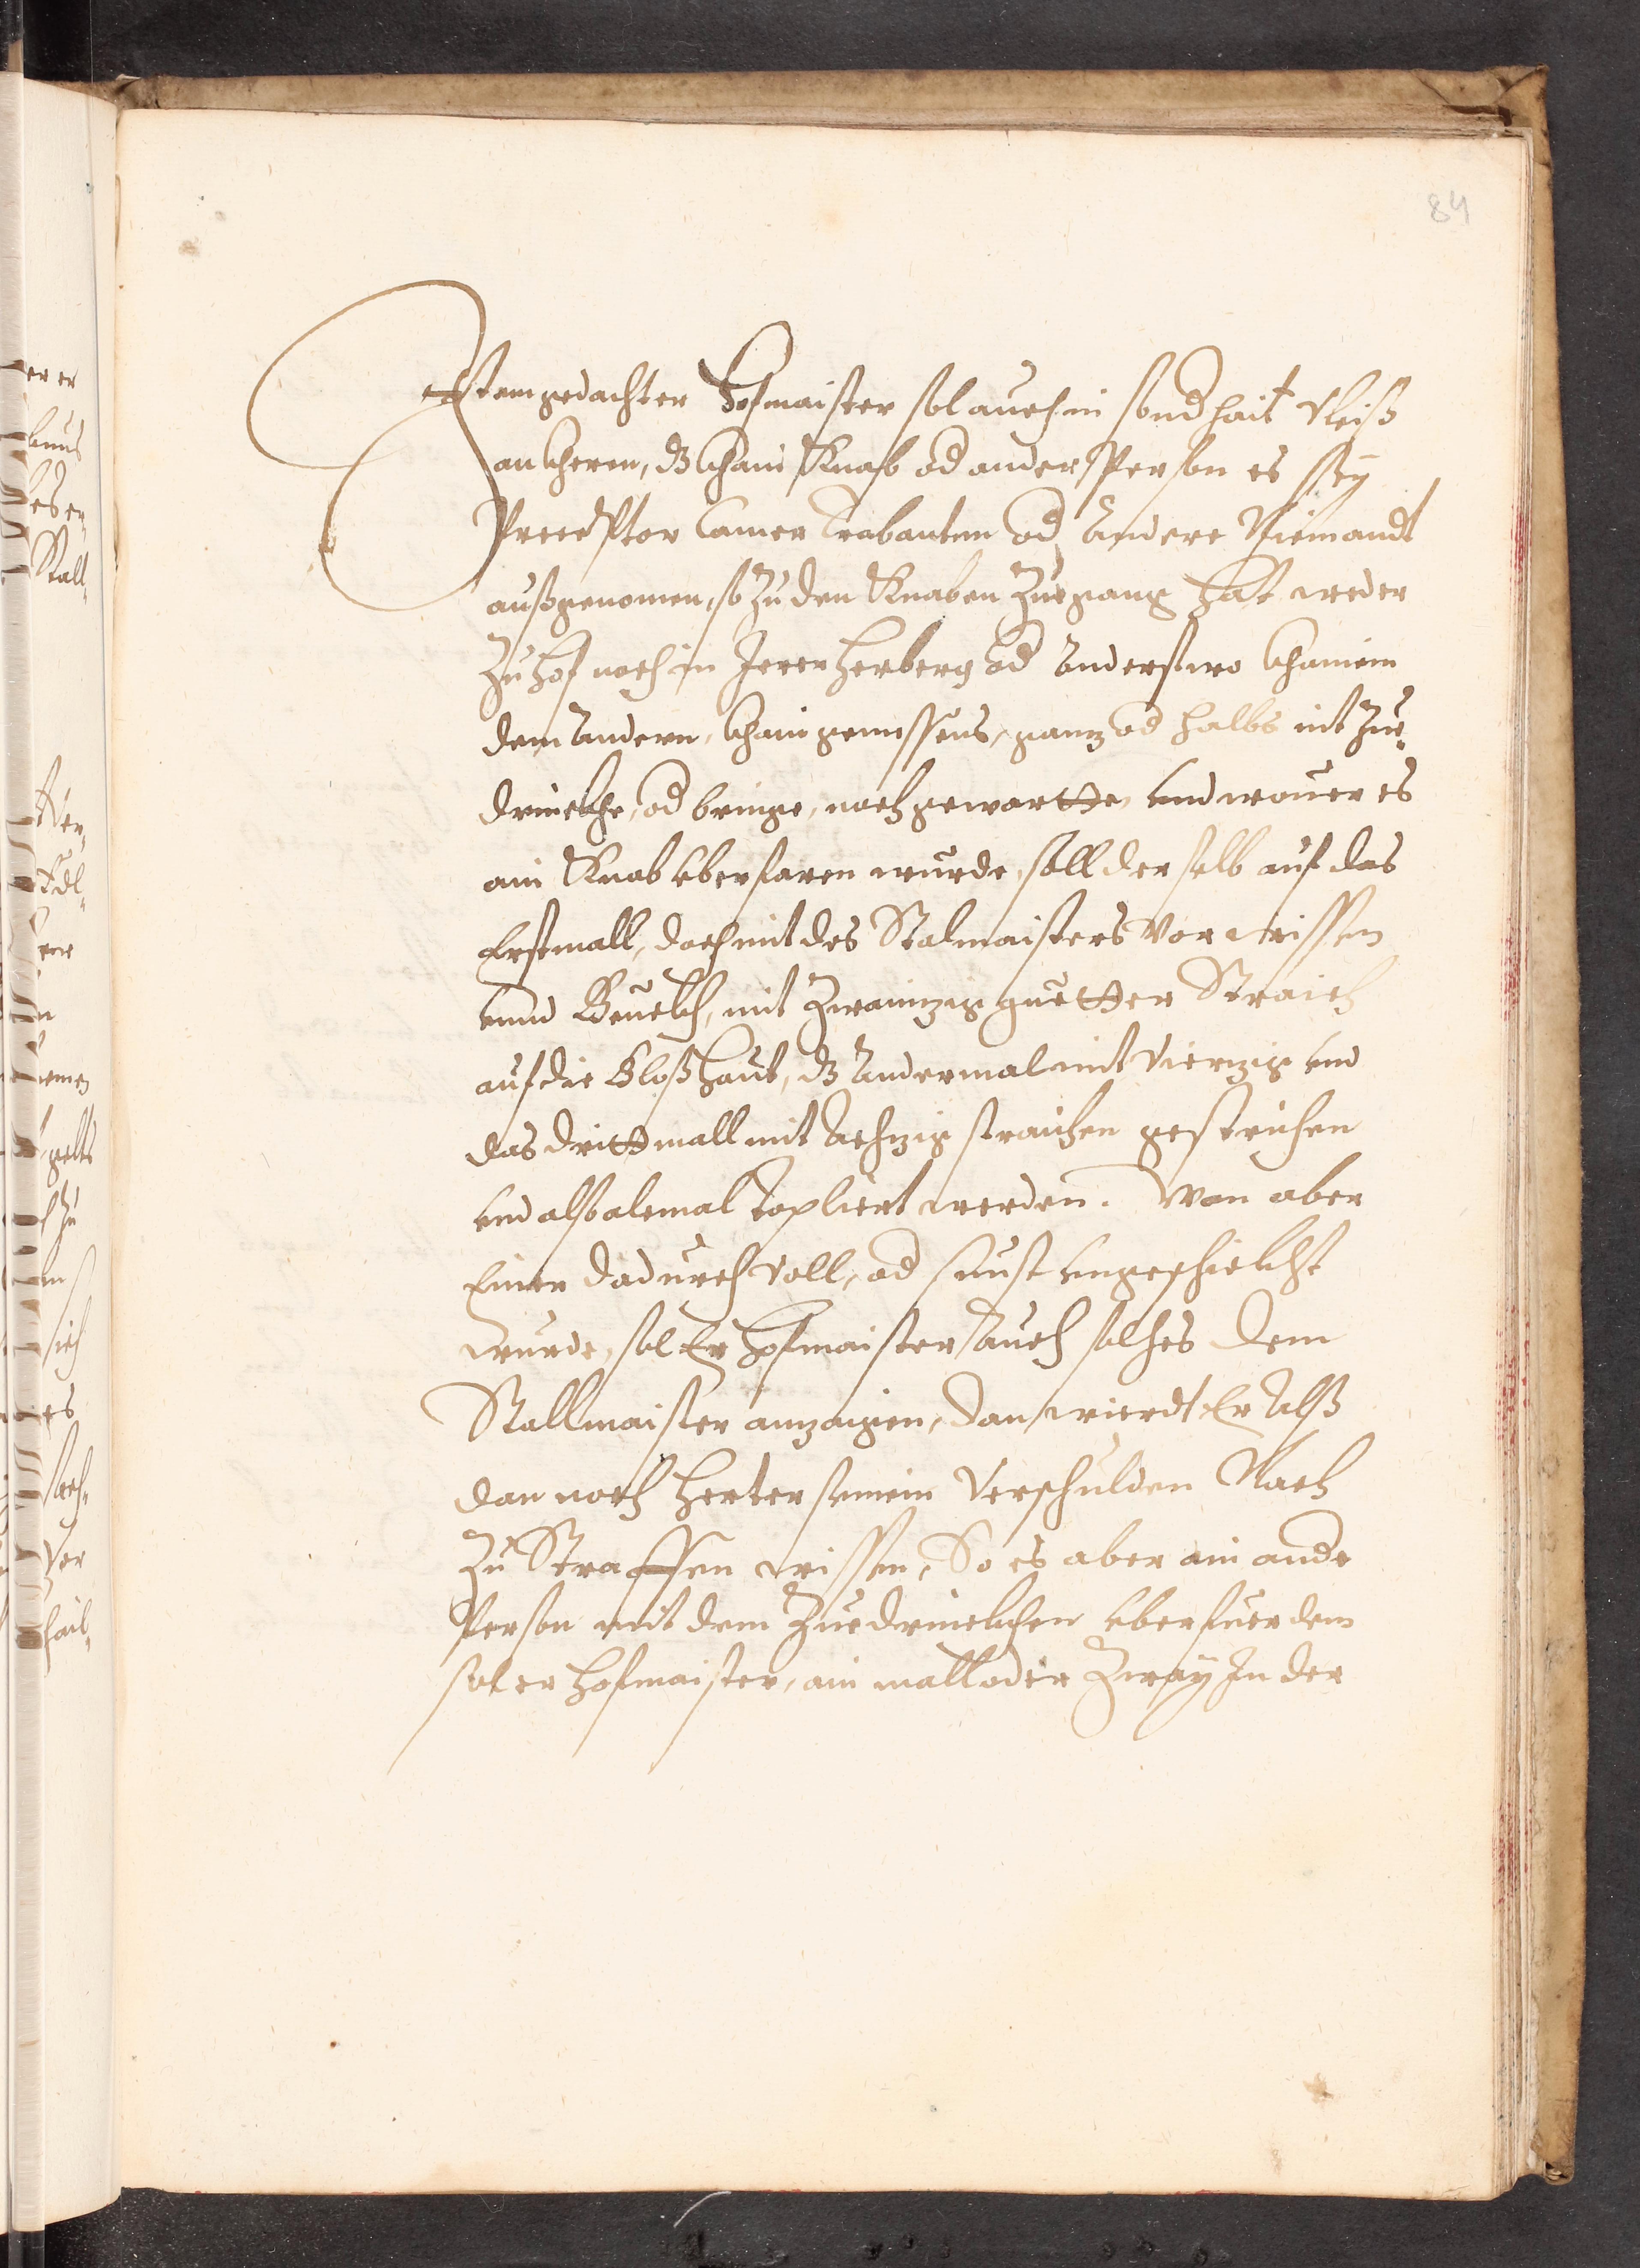 84
Itemgedachter Hofmaister sol auch in sonndhait Vleiß
an kheren, dz khain Knab od ander Person es sey
Preceptor Camer Trabanten od Andere Niemandt
außgenomen, so Zu den Knaben Zuegang hat weder
Zu hof noch in Irer herberg od Anderstwo khainem
dem Andern, khain gemessens, ganz od halbs nit Zue„
drinckhe, od bringe, noch gewartte, und wouer es
ain Knab vberfaren wurde, soll derselb auf das
Erstmall, doch mit des Stalmaisters Vor wissen
vnnd Beuelch, mit Zwainzig guetter Straich
auf die Bloß haut, dz Andermal mit Vierzig vnd
das drittmall mit Achzig straichen gestrichen
vnd also alemal dopliert werden. Wan aber
Einer dadurch voll, od sunst vngeschickht
wurde, sol Er hofmaister Auch solches dem
Stallmaister anzaigen, dan wierdt Er Alß
dan noch herter seinem Verschulden Nach
Zu Straffen wissen, So es aber ain ande
Person mit dem Zuedrinckhen vberfuer dem
sol er hofmaister, ain mall oder Zway In der